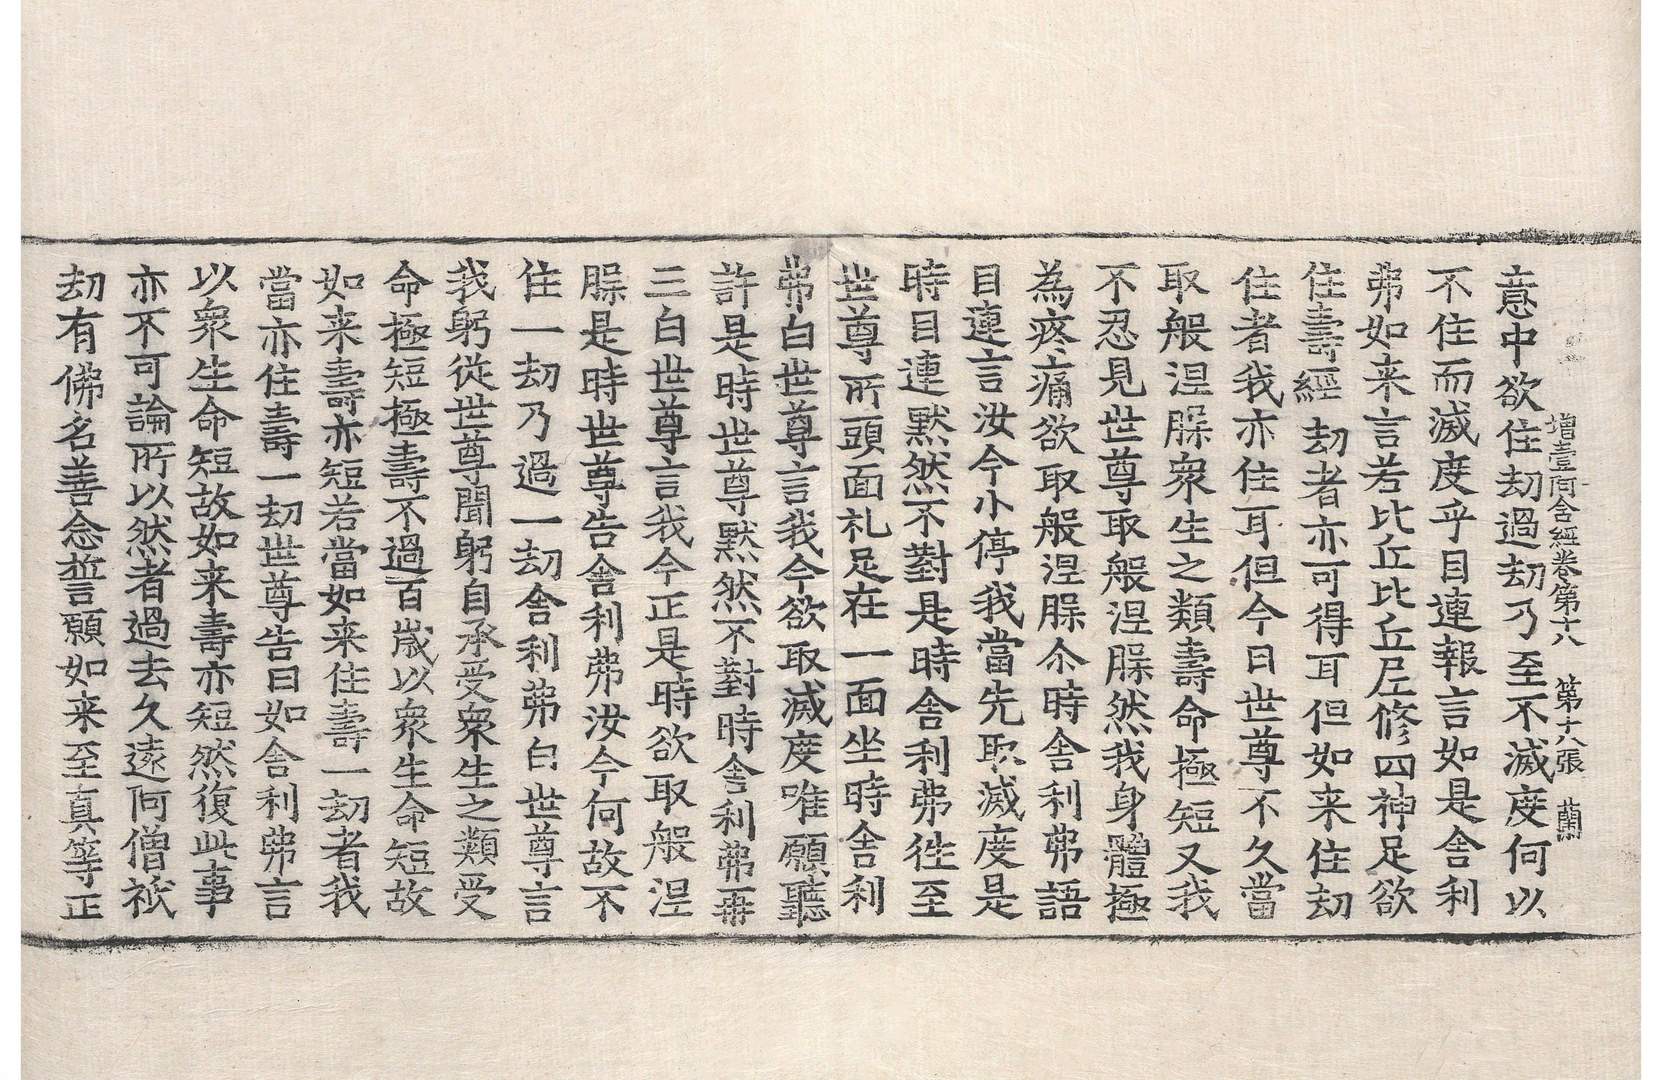 增壹阿含經卷第十八 第十八張 蘭
意中欲住劫過劫乃至不滅度何以
不住而滅度乎目連報言如是舍利
弗如来言若比丘比丘尼修四神足欲
住壽經劫者亦可得耳但如来住劫
住者我亦住耳但今日世尊不久當
取般涅槃衆生之類壽命極短又我
不忍見世尊取般涅槃然我身體極
為疼痛欲取般涅槃尒時舍利弗語
目連言汝今小停我當先取滅度是
時目連默然不對是時舍利弗徃至
世尊所頭面礼足在一面坐時舍利
弗白世尊言我今欲取滅度唯願聽
許是時世尊默然不對時舍利弗再
三白世尊言我今正是時欲取般涅
槃是時世尊告舍利弗汝今何故不
住一劫乃過一劫舍利弗白世尊言
我躬從世尊聞躬自承受衆生之類受
命極短極壽不過百歲以衆生命短故
如来壽亦短若當如来住壽一劫者我
當亦住壽一劫世尊告曰如舍利弗言
以衆生命短故如来壽亦短然復此事
亦不可論所以然者過去久遠阿僧祇
劫有佛名善念誓願如来至真等正